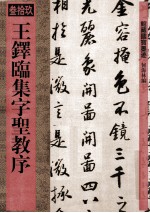 叁拾玖
王鐸臨集字聖教序
金容掩色不鏡三千之
麗象開圖四八
相於是微言